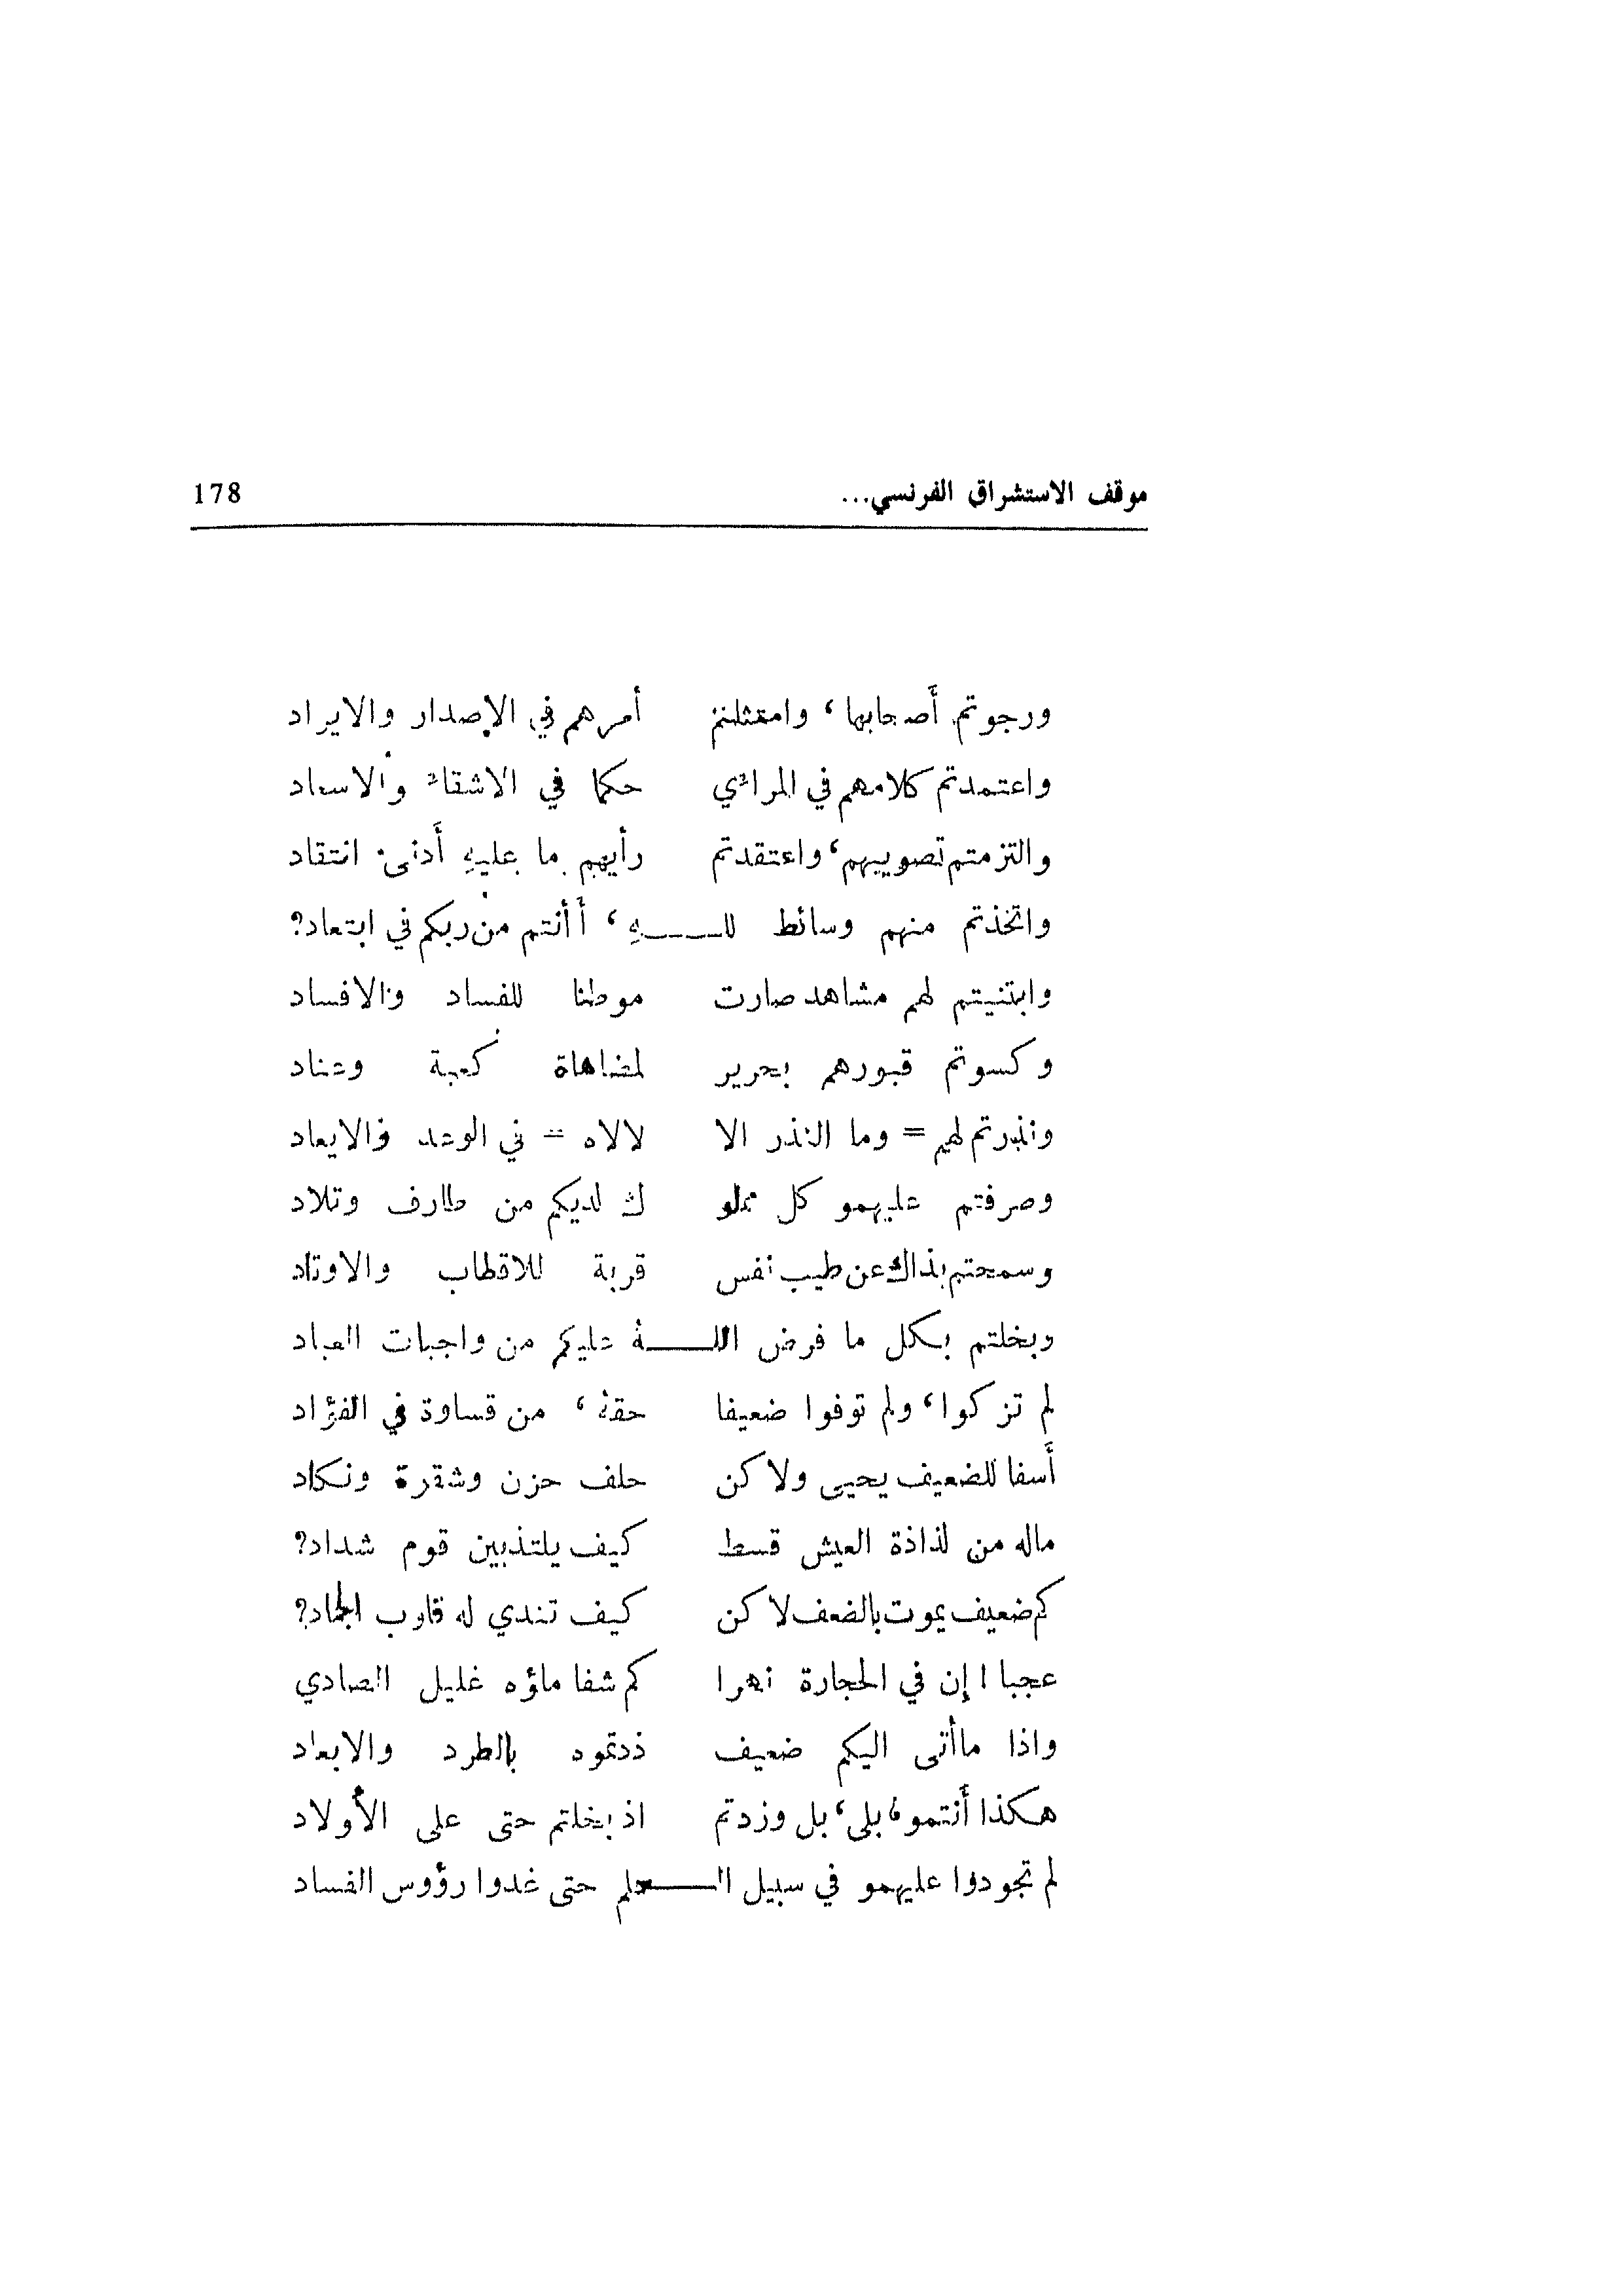 موقف الاستشراق الفرنسي... 178
ورجوتم أصحابها، وامتثلتم أمرهم في الإصدار والايراد
واعتمدتم كلامهم في المرائي حكما في الاشقاء والاسعاد
والتزمتم تصويبهم، واعتقدتم رأيهم ما عليه أدنى انتقاد
واتخذتم منهم وسائط للـــــه، أأنتم من ربكم في ابتعاد؟
وابتنيتم لهم مشاهد صارت موطنا للفساد والافساد
وكسوتم قبورهم بحرير لمضاهاة كعبة وعناد
ونذرتم لهم = وما النذر الا لالاه = في الوعد والايعاد
وصرفتم عليهمو كل مملو ك لديكم من طارف وتلاد
وسمحتم بذاك عن طيب نفس قربة للاقطاب والاوتاد
وبخلتم بكل ما فرض اللـــــه عليكم من واجبات العباد
لم تزكوا، ولم توفوا ضعيفا حقه، من قساوة في الفؤاد
أسفا للضعيف يحيى ولاكن حلف حزن وشقوة ونكاد
ماله من لذاذة العيش قسط كيف يلتذ بين قوم شداد؟
كم ضعيف يموت بالضعف لاكن كيف تندي له قلوب الجماد؟
عجبا ! إن في الحجارة نهرا كم شفا ماؤه غليل الصادي
واذا ما أتى اليكم ضعيف ذدتموه بالطرد والابعاد
هكذا أنتمو، بلى، بل وزدتم اذ بخلتم حتى على الأولاد
لم تجودوا عليهمو في سبيل الـــــعلم حتى غدوا رؤوس الفساد